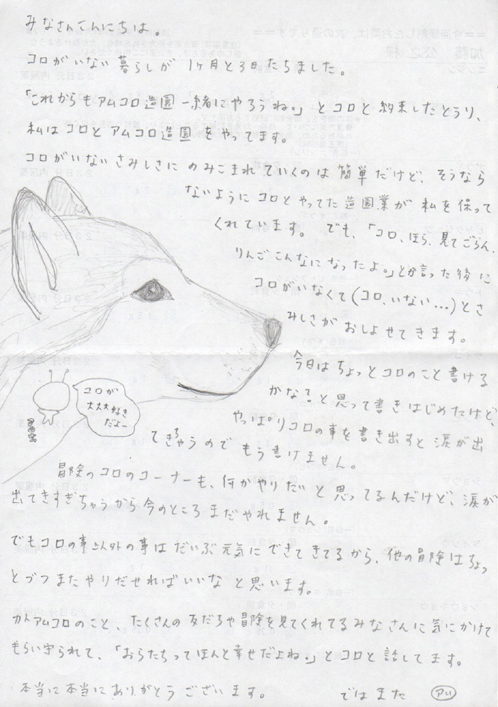 みなさんこんにちは。
コロがいない暮らしが1ヶ月と3日たちました。
「これからもアムコロ造園一緒にやろうね。」とコロと約束したとうり、
私はコロとアムコロ造園をやってます。
コロがいないさみしさにのみこまれていくのは簡単だけど、そうなら
ないようにコロとやってた造園業が私を保って
くれています。でも、「コロ、ほら、見てごらん、
りんごこんなになったよ。」とか言った後に
コロがいなくて(コロ、いない...)とさ
みしさがおしよせてきます。
今日はちょっとコロのこと書ける
かな?と思って書きはじめたけど、
やっぱりコロの事を書き出すと涙が出
てきちゃうのでもう書けません。
コロが
大大大好き
だよー
冒険のコロのコーナーも、何かやりたいと思ってるんだけど、涙が
出てきすぎちゃうから今のところまだやれません。
でもコロの事以外の事はだいぶ元気にできてきてるから、他の冒険はちょっ
とづつまたやりだせればいいなと思います。
アムコロのこと、たくさんの友だちや冒険を見てくれてるみなさんに気にかけて
もらい守られて、「おらたちってほんと幸せだよね。」とコロと話してます。
本当に本当にありがとうございます。 ではまた